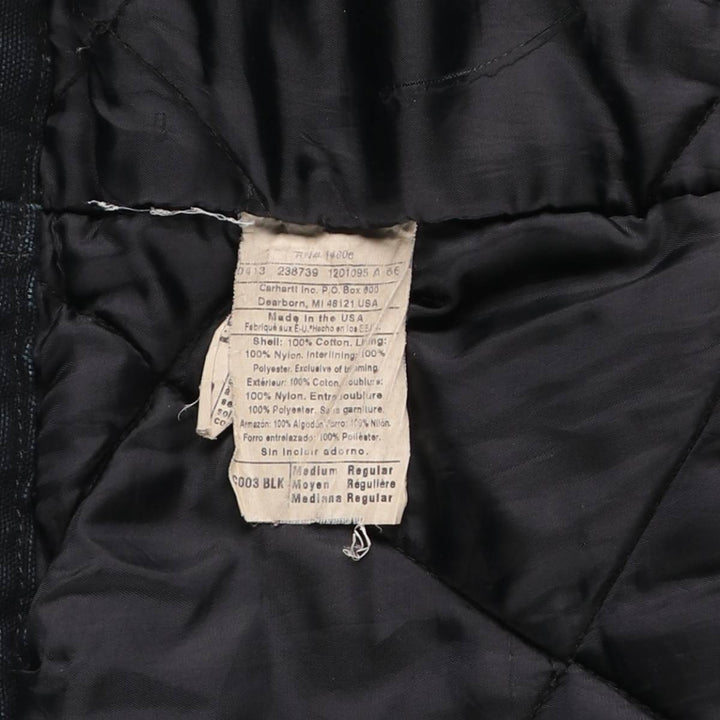 RN# 14806
0413 236739 1201095 A 66
Carhartt Inc. P.O. Box 600
Dearborn, MI 48121 USA
Made in the USA
Fabriqué aux É-U. Hecho en los
Shell: 100% Cotton. Lining:
100% Nylon. Interlining: 100%
Polyester. Exclusive of trimming.
Extérieur: 100% Coton. Doublure:
100% Nylon. Entredoublure
100% Polyester. Sans garniture.
Armazón: 100% Algodón Forro: 100% Nilón.
Forro entrelazado: 100% Poliéster.
Sin incluir adorno.
C003 BLK
Medium Regular
Moyen Régulière
Mediana Regular